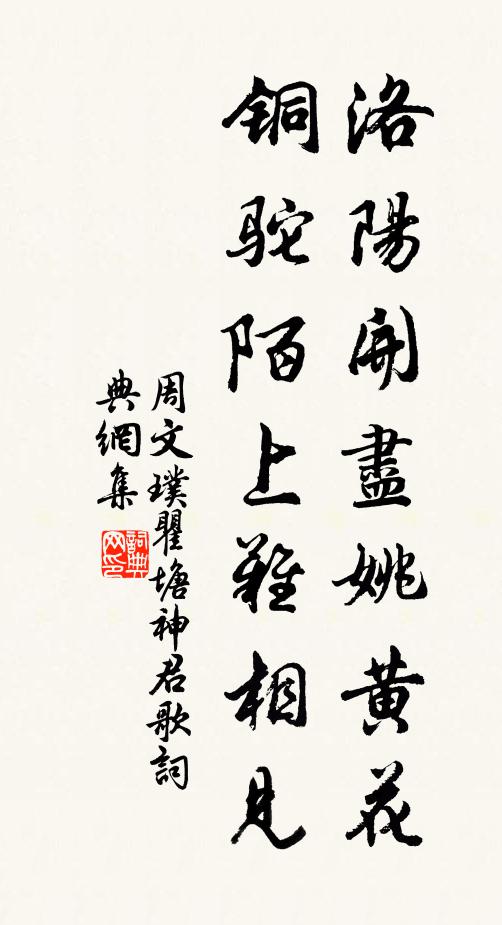 洛陽開盡姚黄花
銅駝陌上難相見
周文璞瞿塘神君歌詞
典網集
詞典
网印